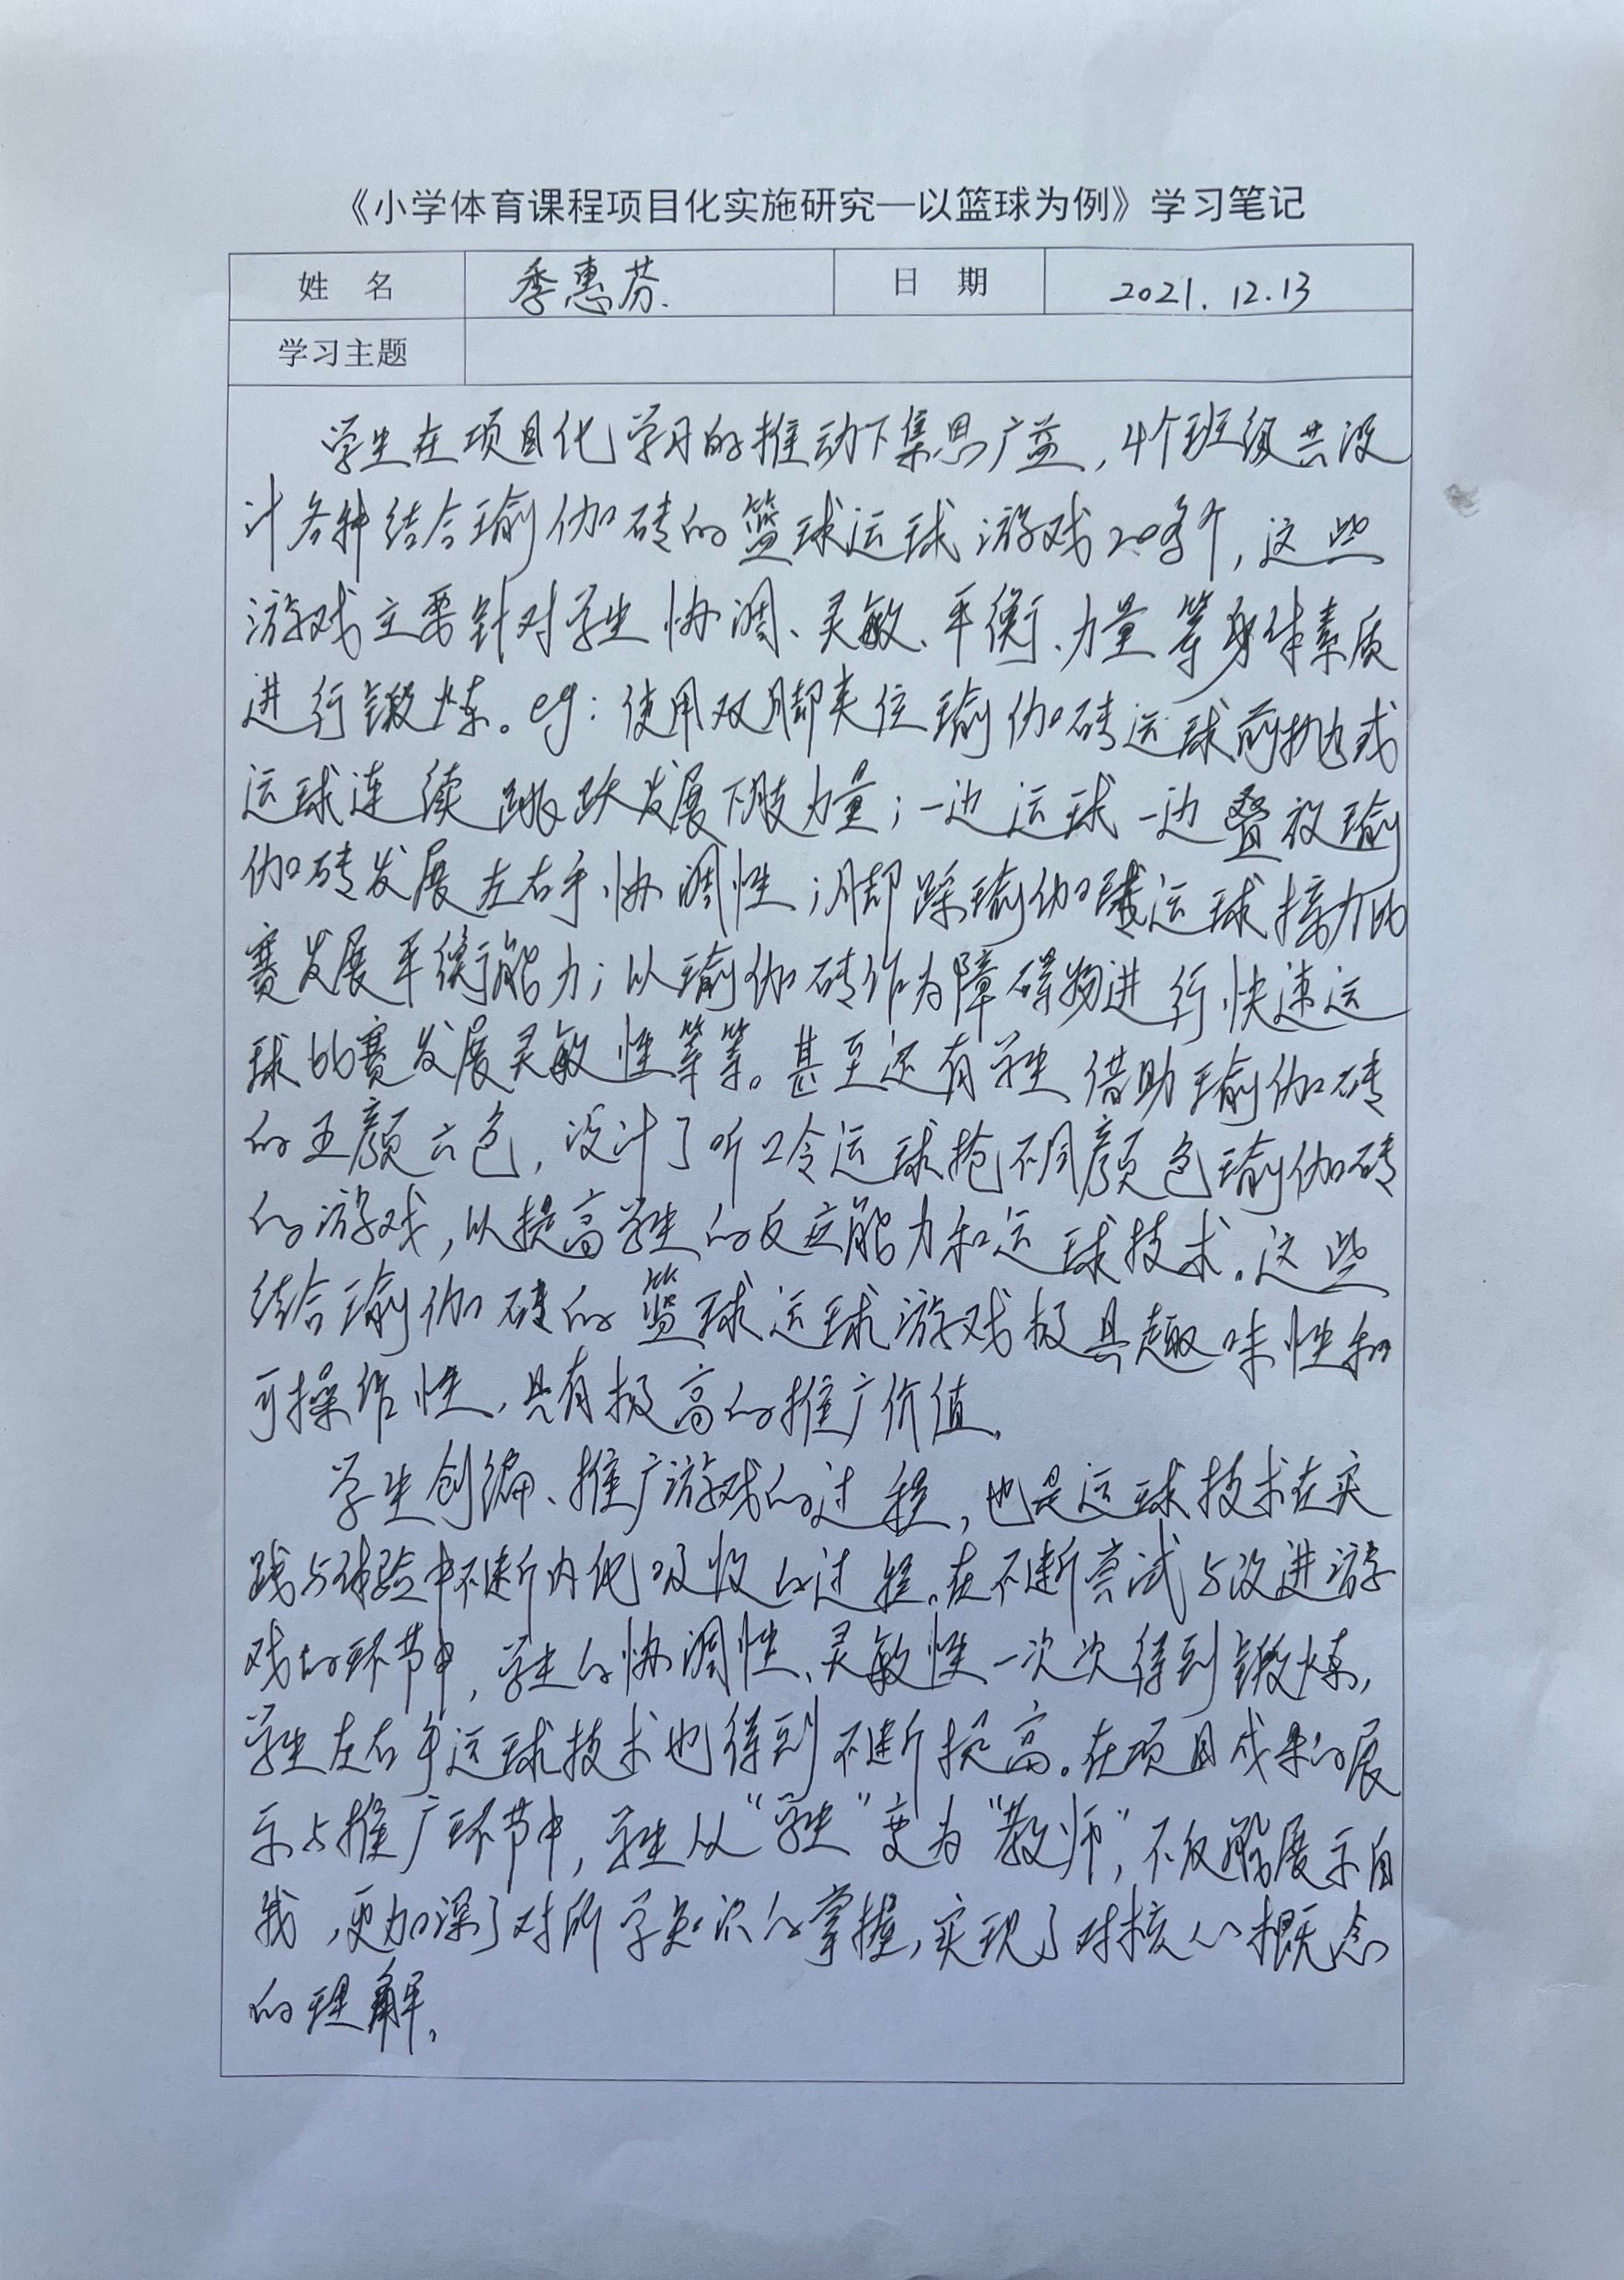 《小学体育课程项目化实施研究—以篮球为例》学习笔记
姓 名 季惠芬. 日 期 2021.12.13
学习主题
学生在项目化学习的推动下集思广益，4个班级共设
计各种结合瑜伽砖的篮球运球游戏20多个，这些
游戏主要针对学生协调、灵敏、平衡、力量等身体素质
进行锻炼。eg：使用双脚夹住瑜伽砖运球前抛或
运球连续跳跃发展下肢力量；一边运球一边叠放瑜
伽砖发展左右手协调性；脚踩瑜伽球运球接力比
赛发展平衡能力；以瑜伽砖作为障碍物进行快速运
球比赛发展灵敏性等等。甚至还有学生借助瑜伽砖
的五颜六色，设计了听口令运球抢不同颜色瑜伽砖
的游戏，以提高学生的反应能力和运球技术。这些
结合瑜伽砖的篮球运球游戏极具趣味性和
可操作性，具有极高的推广价值。
学生创编、推广游戏的过程，也是运球技术在实
践与体验中不断内化吸收的过程。在不断尝试与改进游
戏的环节中，学生的协调性、灵敏性一次次得到锻炼，
学生左右手运球技术也得到不断提高。在项目成果的展
示与推广环节中，学生从“学生”变为“教师”，不仅能展示自
我，更加深了对所学知识的掌握，实现了对核心概念
的理解。